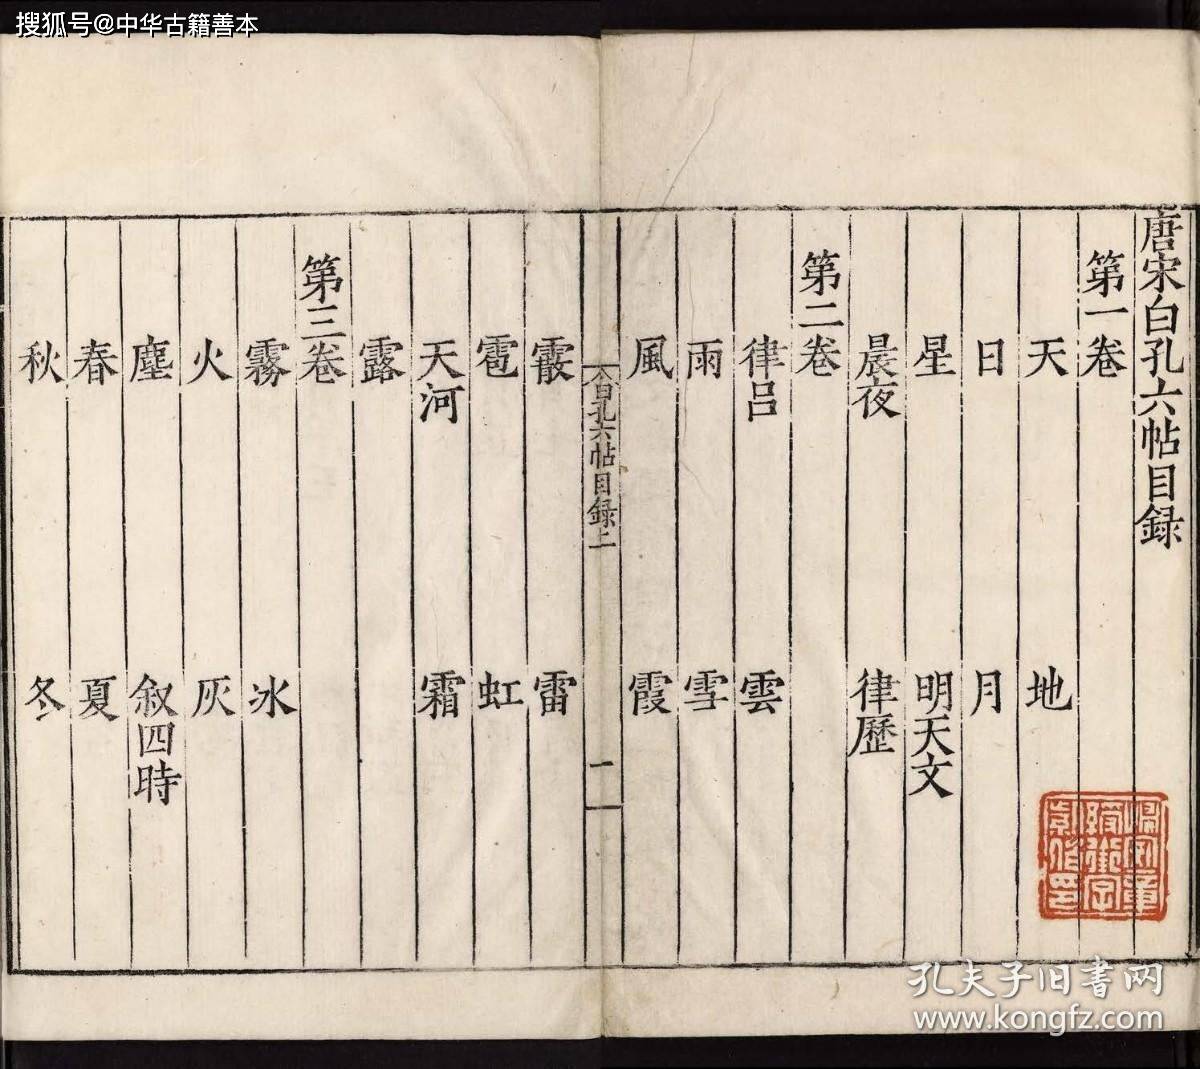 搜狐号@中华古籍善本
唐宋白孔六帖目録
第一卷
天 地
日 月
星 明天文
晨夜 律歷
第二卷
律呂 雲
雨 雪
風 霞
白孔六帖目録上 一
霰 雷
雹 虹
天河 霜
露
第三卷
霧 冰
火 灰
塵 叙四時
春 夏
秋 冬
孔夫子旧书网
www.kongfz.com